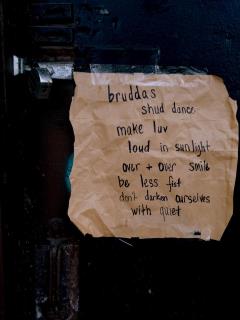 bruddas
shud dance
make luv
loud in sunlight
over + over smile
be less fist
don't darken ourselves
with quiet